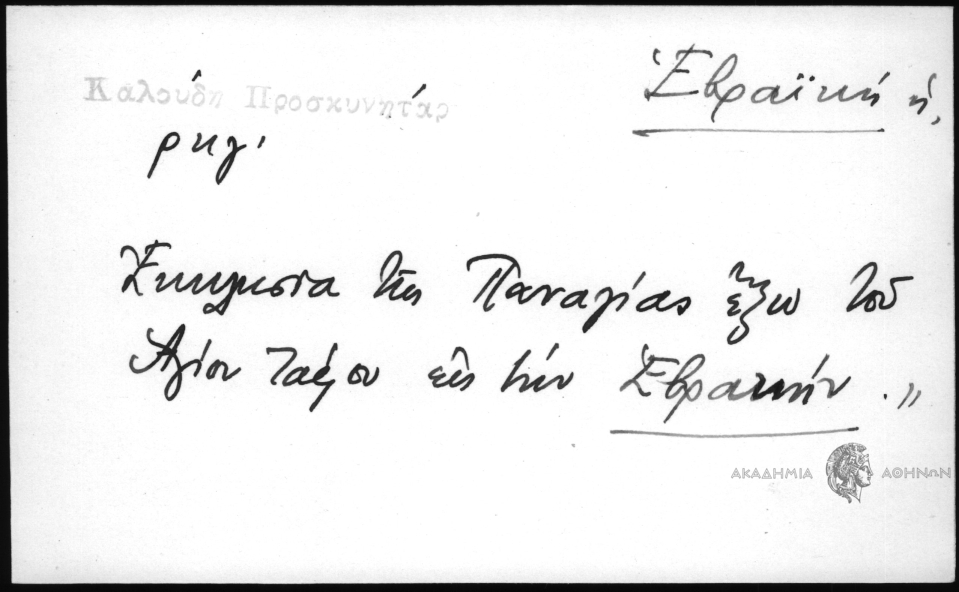 Καλούδη Προσκυνητάρ
Ἑβραϊκή ἡ,
ρκγ'
Ἐκκλησία τῆς Παναγίας ἔξω τοῦ
Ἁγίου Τάφου εἰς τήν Ἑβραικήν . "
ΑΚΑΔΗΜΙΑ ΑΘΗΝΩΝ